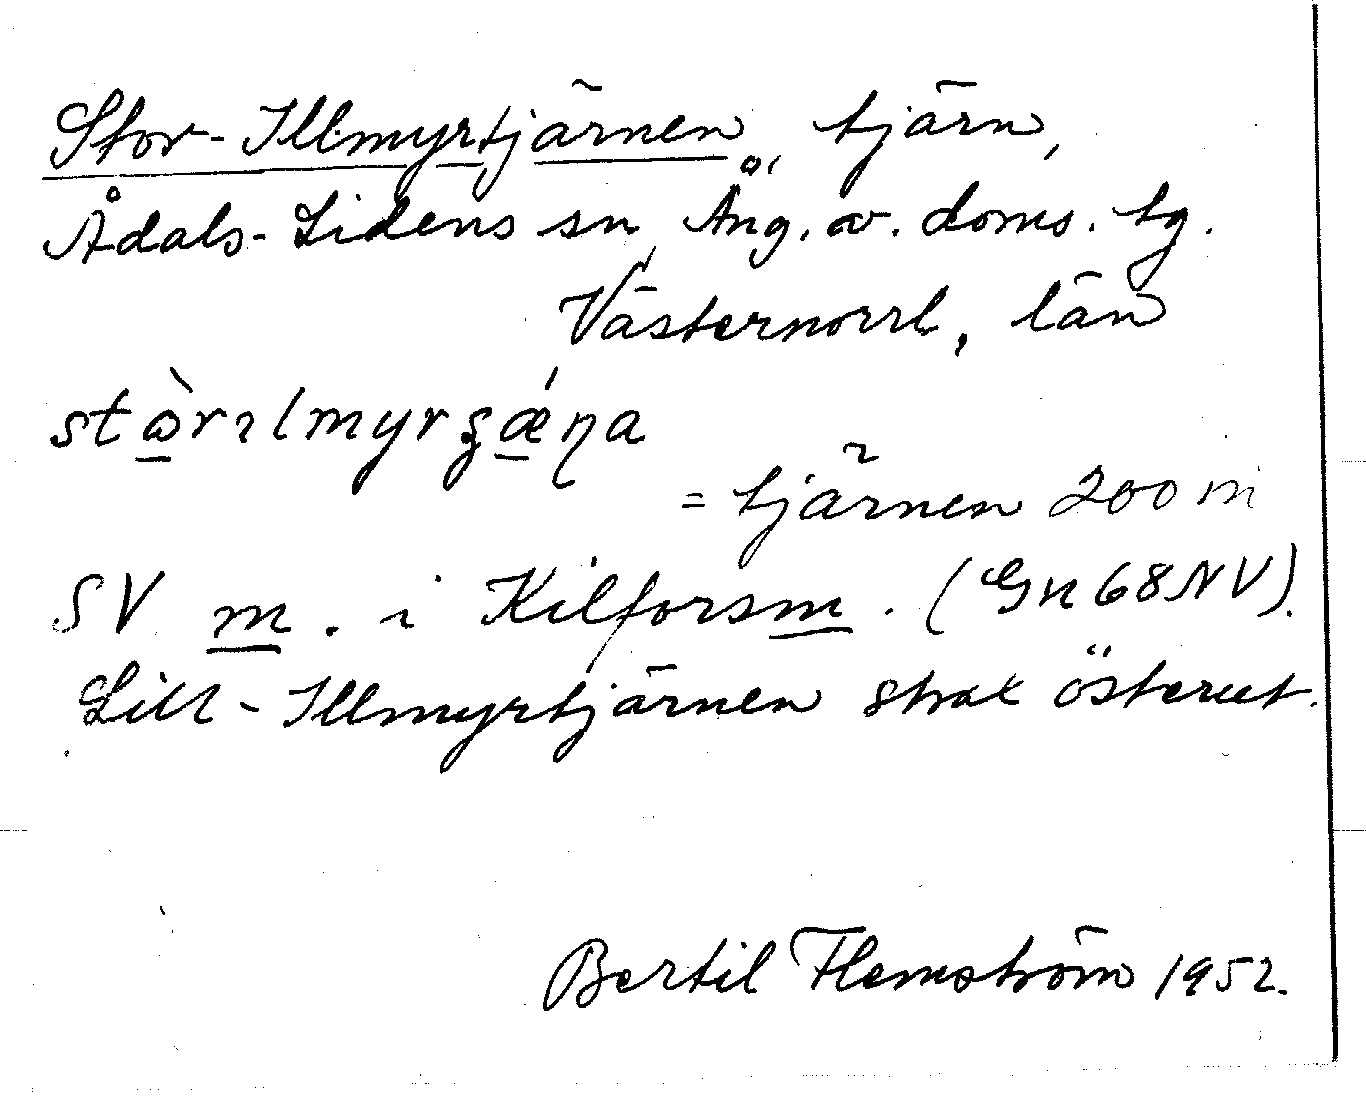 Stor-Illmyrtjärnen, tjärn,
Ådals-Lidens sn, Ång. v. doms. tg.
Västernorrl, län
stɷ̀rɿlmyrʂǽŋa
= tjärnen 200 m
SV m. i Kilforsm. (Gn 68 NV).
Lill-Illmyrtjärnen strax österut.
Bertil Flemström 1952.